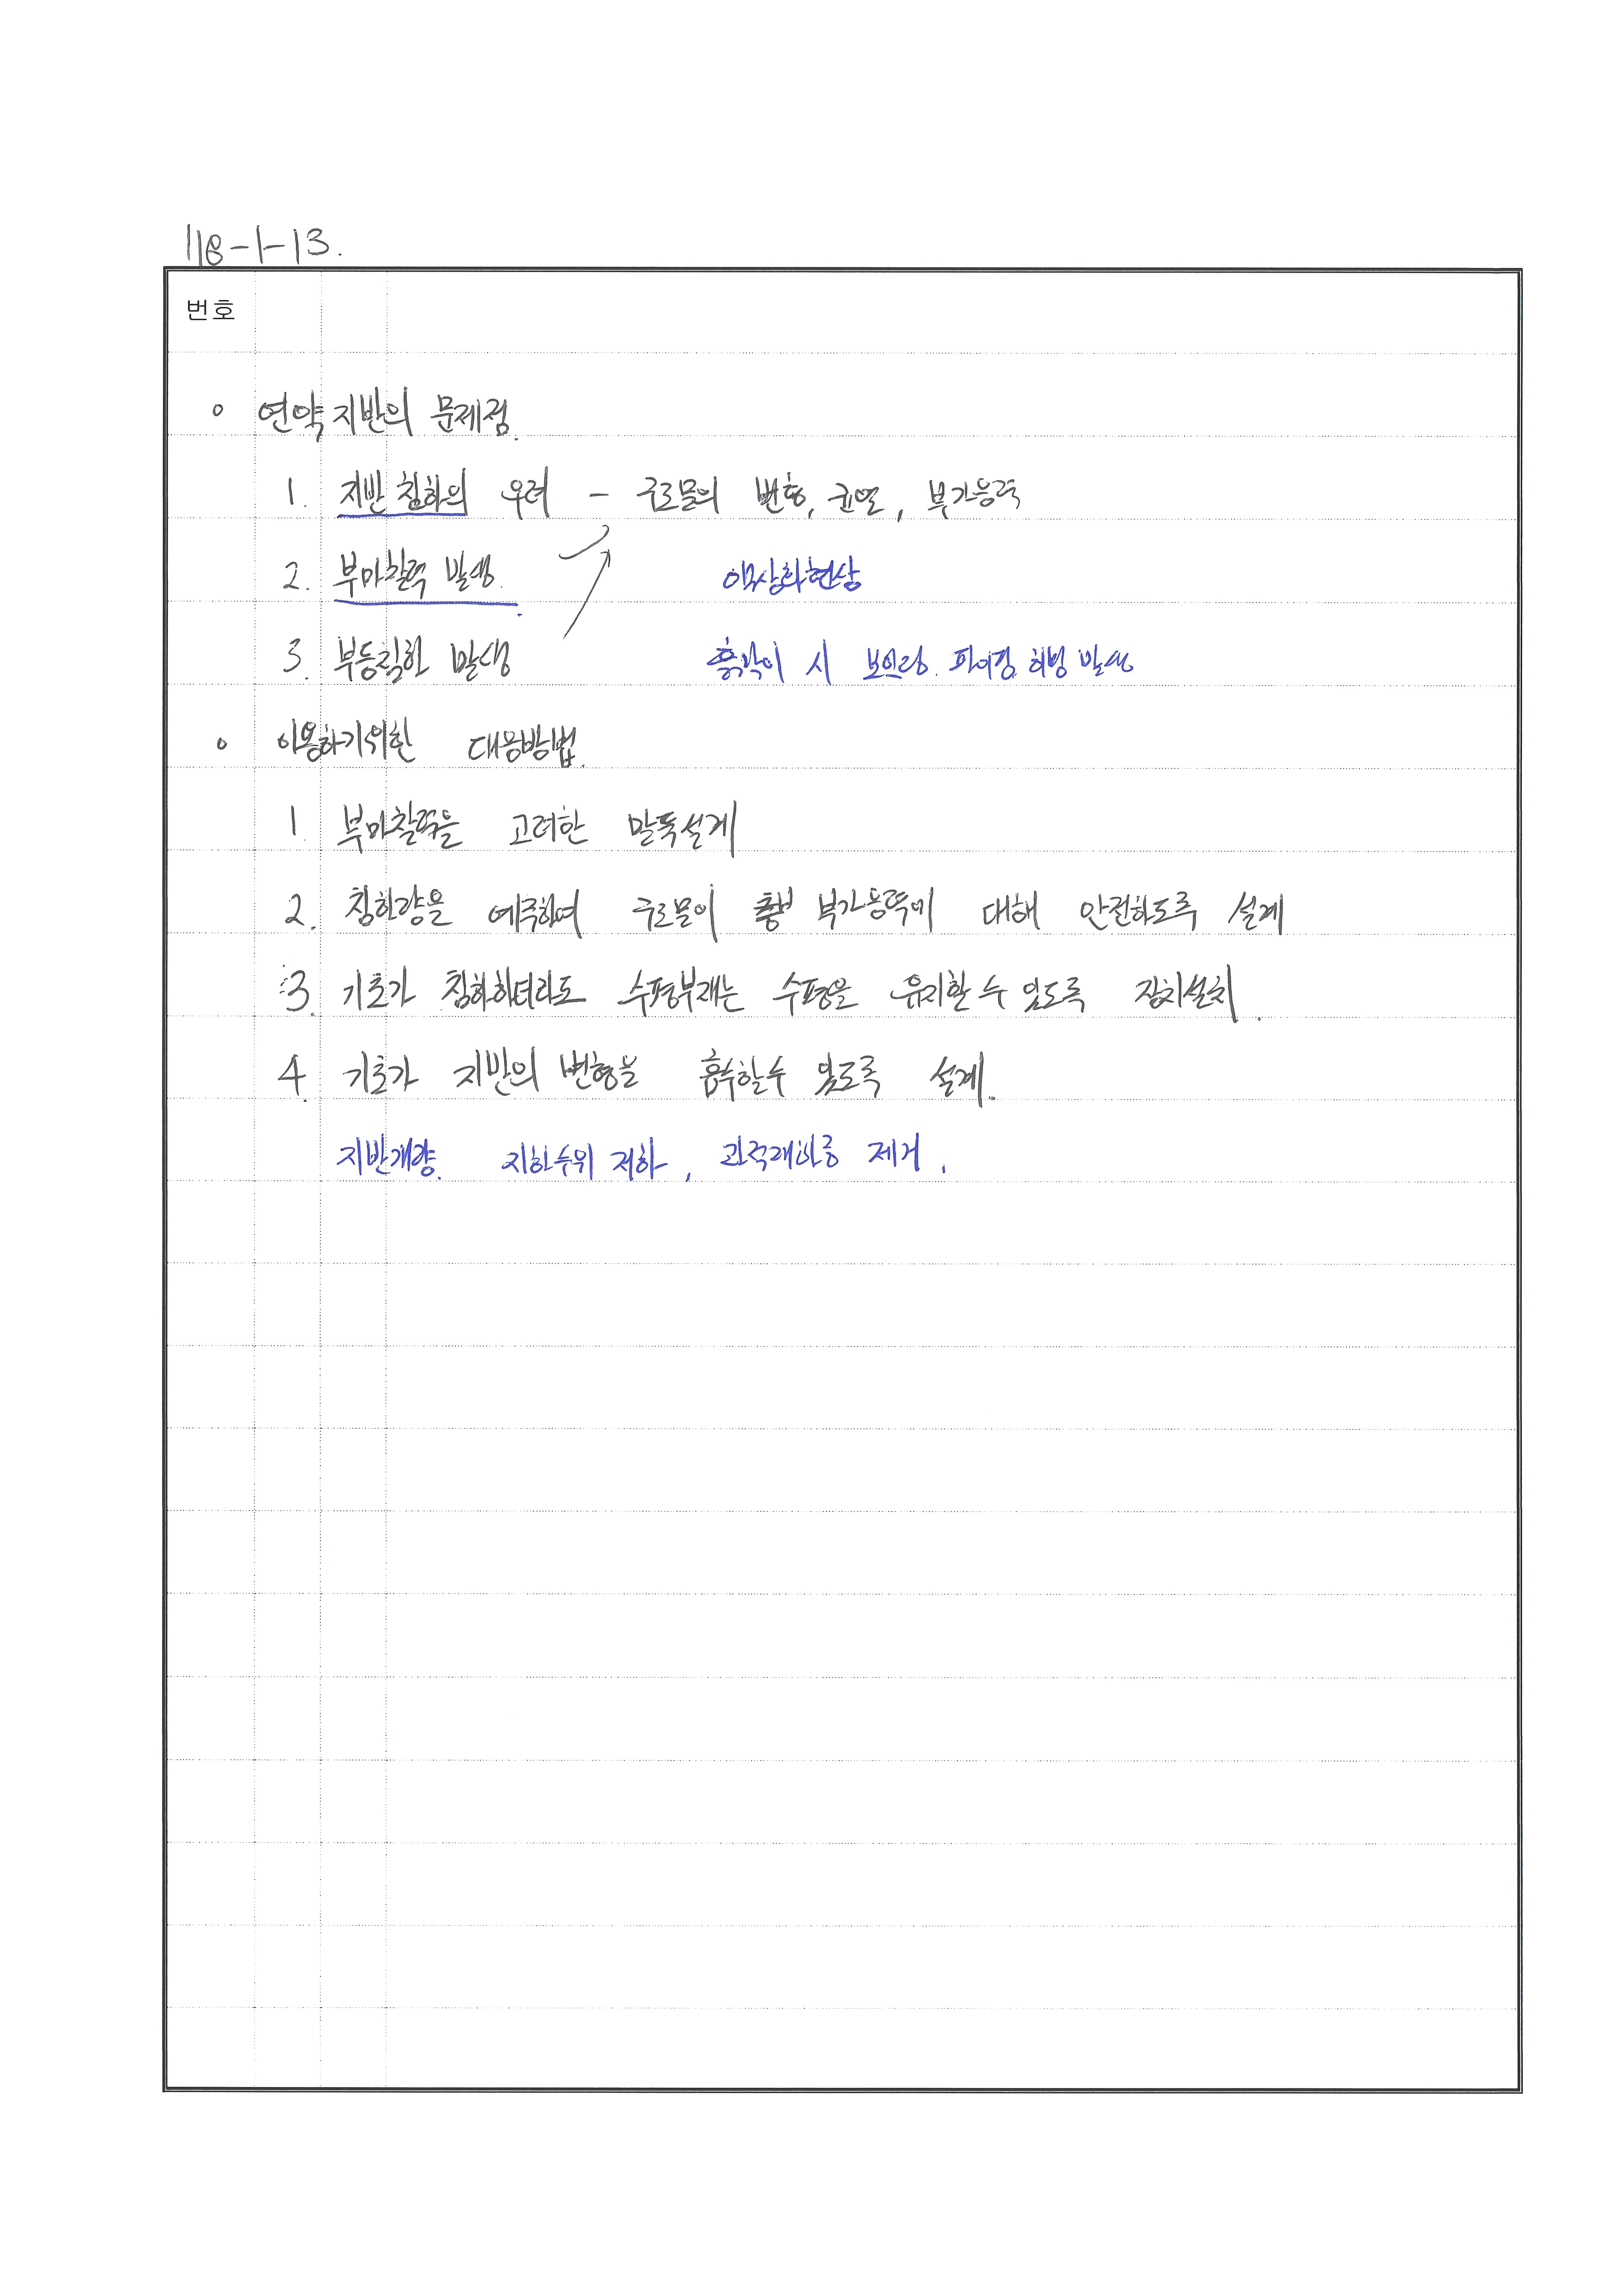 118-1-13.
번호
○ 연약지반의 문제점.
1. 지반침하의 우려 - 구조물의 변형, 균열, 부가응력
2. 부마찰력 발생. 액상화현상
3. 부등침하 발생 흙막이 시 보일링. 파이핑, 히빙 발생
○ 이용하기위한 대응방법.
1. 부마찰력을 고려한 말뚝설계
2. 침하량을 예측하여 구조물이 부가응력에 대해 안전하도록 설계
3. 기초가 침하하더라도 수평부재는 수평을 유지할 수 있도록 장치설치.
4. 기초가 지반의 변형을 흡수할수 있도록 설계.
지반개량. 지하수위 저하, 과적재하중 제거.